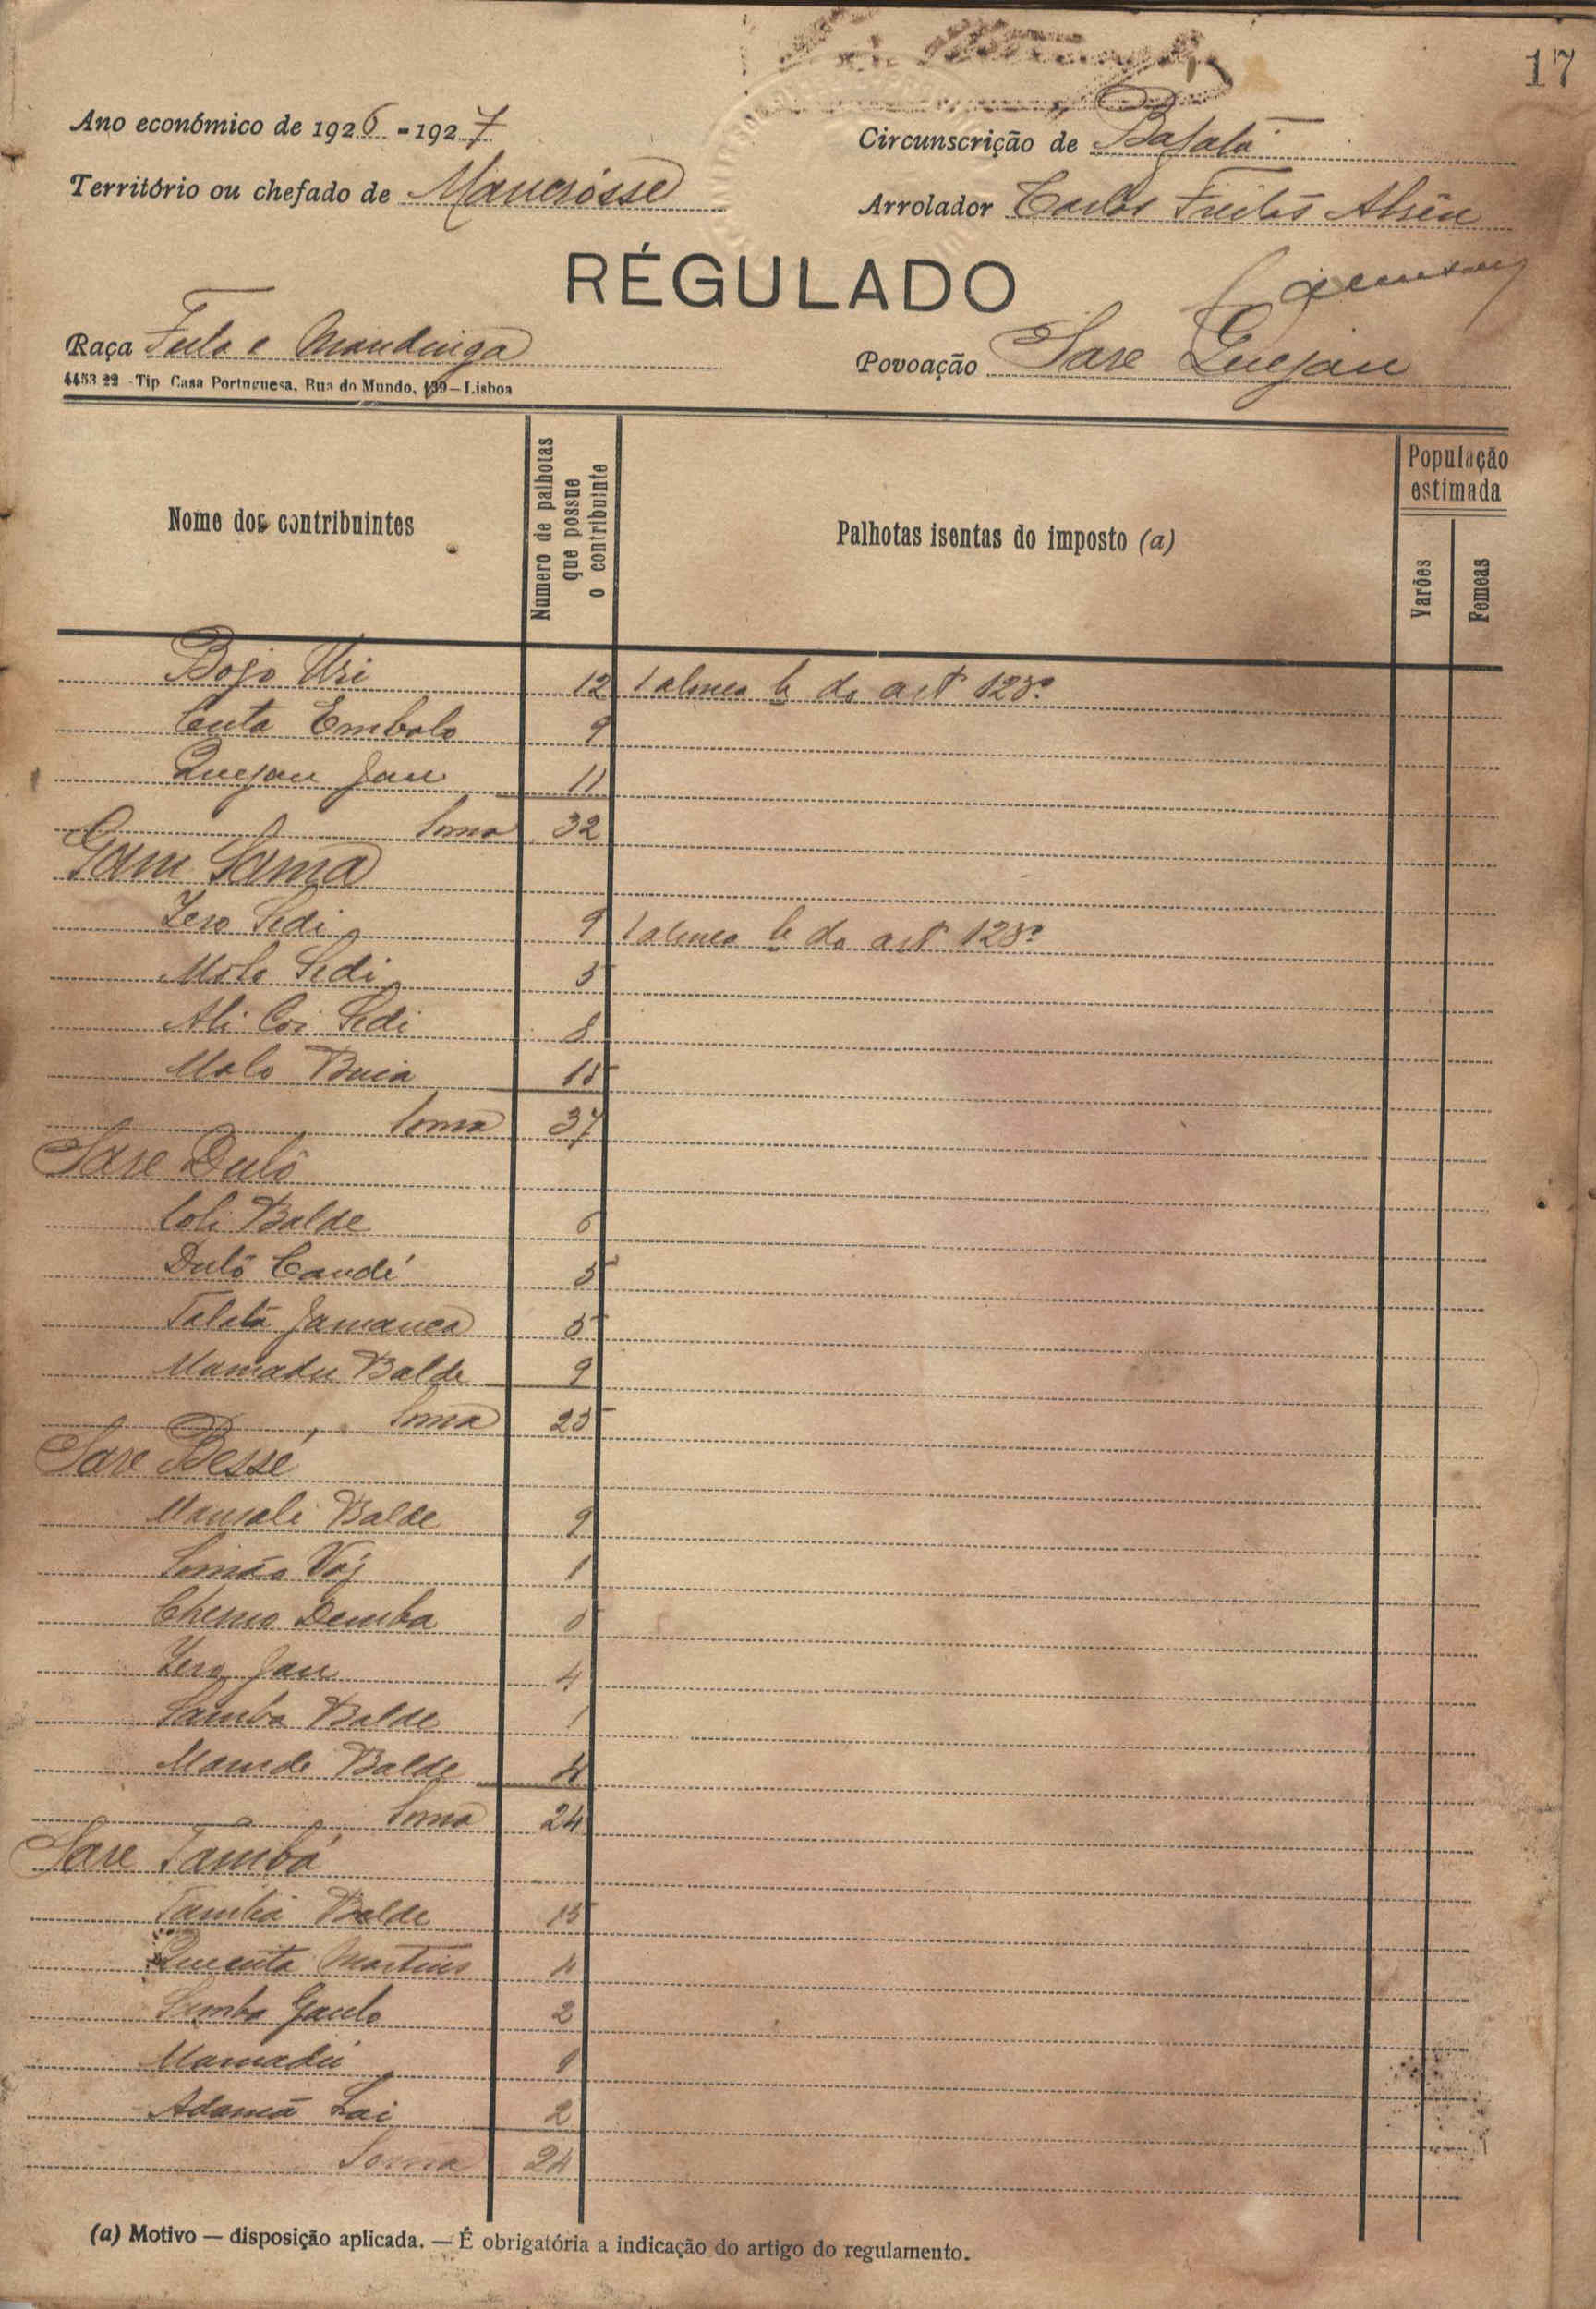 17
Ano económico de 1926-1927
Circunscrição de Bafatá
Território ou chefado de Mancrósse
Arrolador Carlos Freitas
RÉGULADO
Raça Fula e Mandinga
Povoação Sare Quejan
4453 22 - Tip Casa Portuguesa, Rua do Mundo, 139—Lisboa
Nome dos contribuintes
Numero de palhotas que possue o contribuinte
Palhotas isentas do imposto (a)
População estimada
Varões
Femeas
Bojo Uri 12 1 alinea b do artº 123º
Cuta Embalo 9
Quejan Jau 11
Soma 32
Gam Sama
Iero Sedi 9 1 alinea b do artº 123º
Molo Sedi 5
Ali Coi Sedi 8
Malo Buia 15
Soma 37
Sare Duló
Coli Balde 6
Duló Candé 5
Talatá Jamanca 5
Mamadu Balde 9
Soma 25
Sare Bessé
Mansali Balde 9
1
Cherno Demba 5
Iero Jau 4
Samba Balde 1
Mamde Balde 4
Soma 24
Sare Tambá
Tambá Balde 15
Quecuta Martins 4
Samba Gaulo 2
Mamadú 1
Adamá Lai 2
Soma 24
(a) Motivo — disposição aplicada. — É obrigatória a indicação do artigo do regulamento.